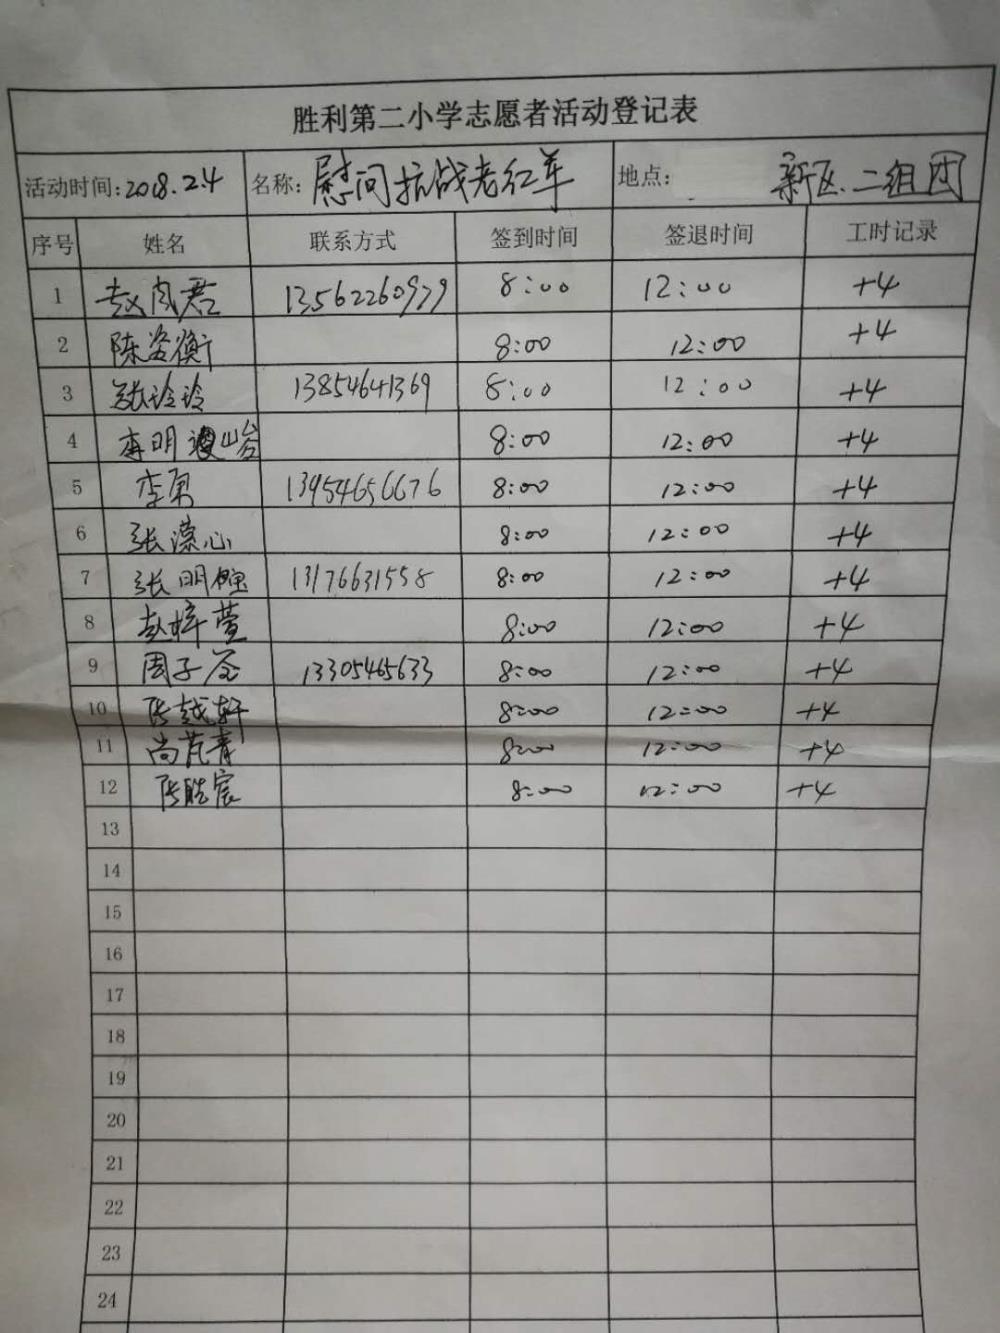 胜利第二小学志愿者活动登记表
活动时间:2018.2.4 名称:慰问抗战老红军 地点: 新区.二组团
序号 姓名 联系方式 签到时间 签退时间 工时记录
1 赵君 13562260979 8:00 12:00 +4
2 陈姿衡 8:00 12:00 +4
3 张玲玲 13854641369 8:00 12:00 +4
4 李明 8:00 12:00 +4
5 李勇 13954656676 8:00 12:00 +4
6 张濛心 8:00 12:00 +4
7 张明 13176631558 8:00 12:00 +4
8 赵梓萱 8:00 12:00 +4
9 周子 13305465633 8:00 12:00 +4
10 张越轩 8:00 12:00 +4
11 尚芃青 8:00 12:00 +4
12 张皓宸 8:00 12:00 +4
13
14
15
16
17
18
19
20
21
22
23
24